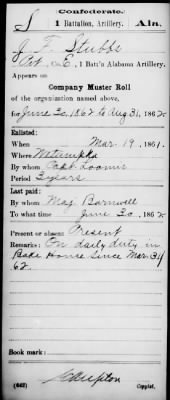 Confederate.
S 1 Battalion, Artillery. Ala.
J F Stubbs
Pvt, Co. E, 1 Batt'n Alabama Artillery.
Appears on
Company Muster Roll
of the organization named above,
for June 30, 1862 to Aug 31, 1862
Enlisted:
When Mar. 19, 1861.
Where Wetumpka
By whom Capt. Loomis
Period 3 years
Last paid:
By whom Maj Barnwell
To what time June 30, 1862
Present or absent Present
Remarks: On daily duty in
Bake House since Mar. 31/
62.
Book mark:
(642) Copyist.